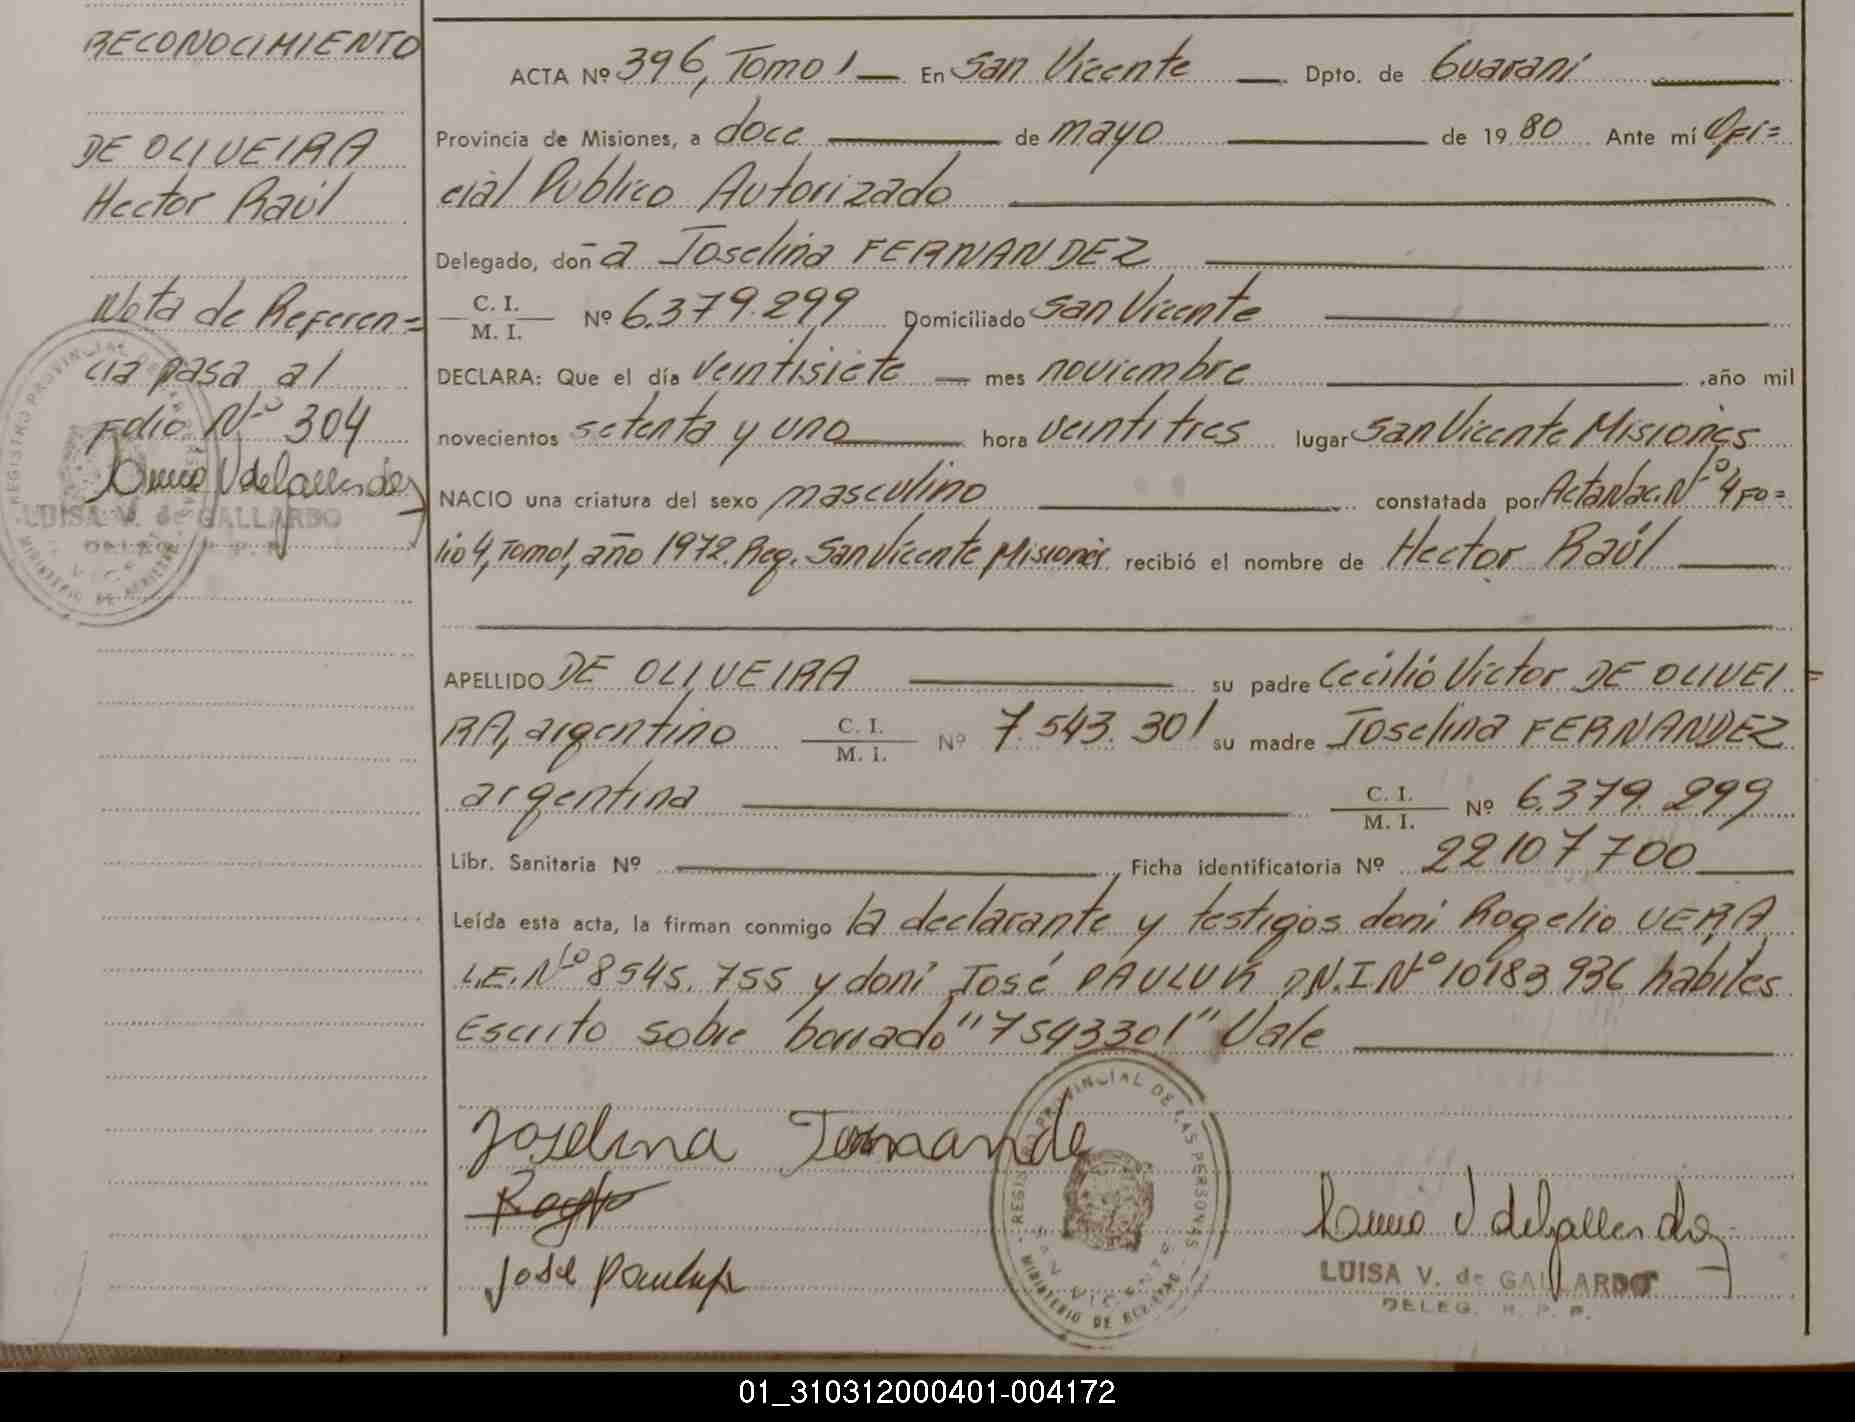 RECONOCIMIENTO
DE OLIVEIRA
Hector Raúl
Nota de Referen=
cia pasa al
Folio Nº 304
LUISA V. de GALLARDO
DELEG. R. P. P.
ACTA Nº 396, Tomo 1 En San Vicente Dpto. de Guaraní
Provincia de Misiones, a doce de mayo de 1980 Ante mí Ofi=
cial Publico Autorizado
Delegado, doña Joselina FERNANDEZ
C. I.
M. I. Nº 6.379.299 Domiciliado San Vicente
DECLARA: Que el día veintisiete mes noviembre, año mil
novecientos setenta y uno hora veintitres lugar San Vicente Misiones
NACIO una criatura del sexo masculino constatada por Acta Nac. Nº 4 Fo=
lio 4, Tomo 1, año 1972. Reg. San Vicente Misiones. recibió el nombre de Hector Raúl
APELLIDO DE OLIVEIRA su padre Cecilio Victor DE OLIVEI=
RA, argentino C. I.
M. I. Nº 7.543.301 su madre Joselina FERNANDEZ
argentina C. I.
M. I. Nº 6.379.299
Libr. Sanitaria Nº Ficha identificatoria Nº 22107700
Leída esta acta, la firman conmigo la declarante y testigos doni Rogelio VERA
L.E. Nº 8545.755 y doni José PAULUK D.N.I Nº 10183936 habiles
Escrito sobre borrado "7543301" Vale
Joselina Fernande
REGISTRO PROVINCIAL DE LAS PERSONAS
SAN VICENTE
MINISTERIO DE
José Pauluk
LUISA V. de GALLARDO
DELEG. R. P. P.
01_310312000401-004172